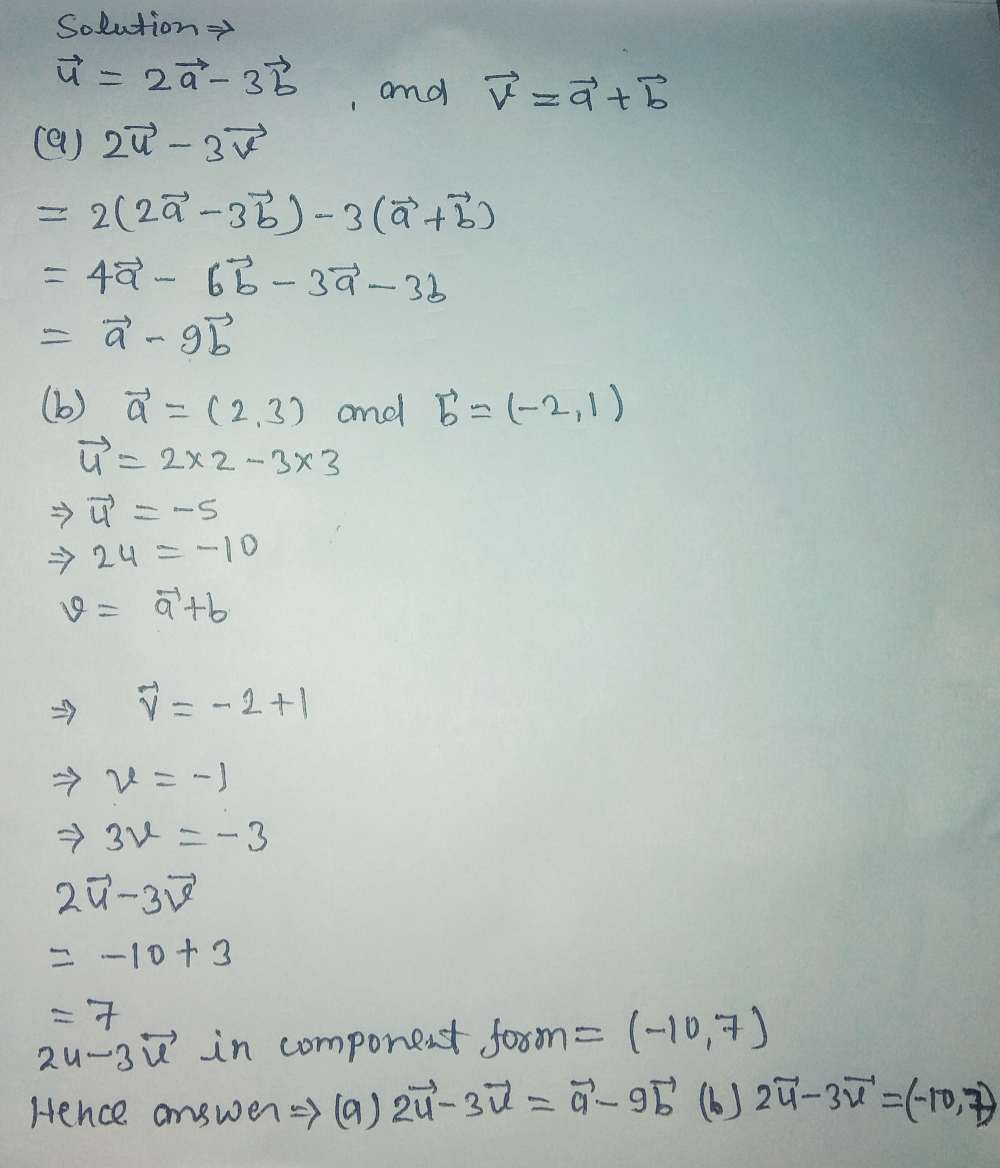 Solution⇒
u⃗ = 2a⃗ - 3b⃗ , and v⃗ = a⃗ + b⃗
(a) 2u⃗ - 3v⃗
= 2(2a⃗ - 3b⃗) - 3(a⃗ + b⃗)
= 4a⃗ - 6b⃗ - 3a⃗ - 3b
= a⃗ - 9b⃗
(b) a⃗ = (2,3) and b⃗ = (-2,1)
u⃗ = 2×2 - 3×3
⇒ u⃗ = -5
⇒ 2u = -10
v = a⃗ + b
⇒ v⃗ = -2+1
⇒ v = -1
⇒ 3v = -3
2u⃗ - 3v⃗
= -10 + 3
= 7
2u - 3v⃗ in component form = (-10,7)
Hence answer ⇒ (a) 2u⃗ - 3v⃗ = a⃗ - 9b⃗ (b) 2u⃗ - 3v⃗ = (-10,7)